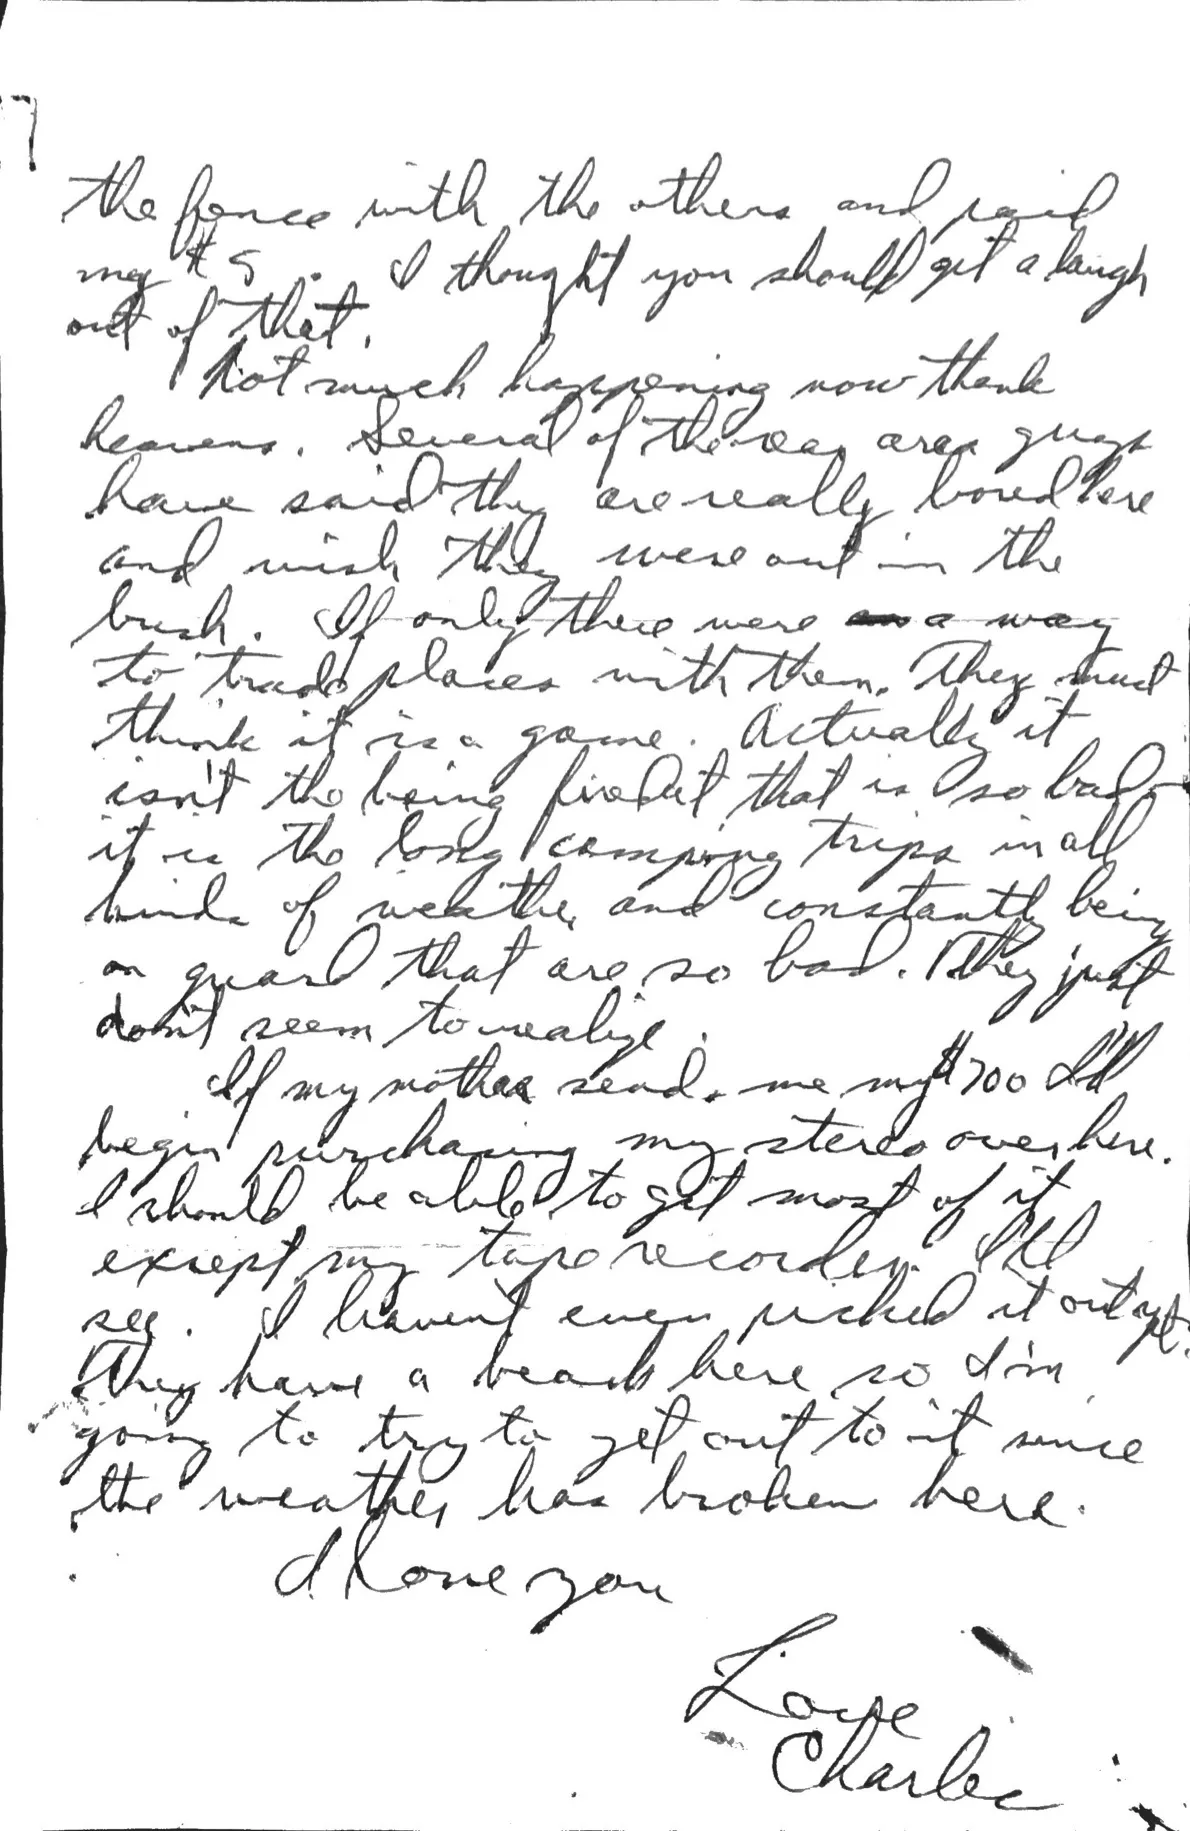 7
the fence with the others and paid
my $5. I thought you should get a laugh
out of that.
Not much happening now thank
heavens. Several of the rear area guys
have said they are really bored here
and wish they were out in the
bush. If only there were a way
to trade places with them. They must
think it is a game. Actually it
isn't the being fired at that is so bad -
it is the long camping trips in all
kinds of weather and constantly being
on guard that are so bad. They just
don't seem to realize.
If my mother sends me my $700 I'll
begin purchasing my stereo over here.
I should be able to get most of it
except my tape recorder. I'll
see. I haven't even picked it out yet.
They have a beach here so I'm
going to try to get out to it since
the weather has broken here.
I love you
Love
Charles